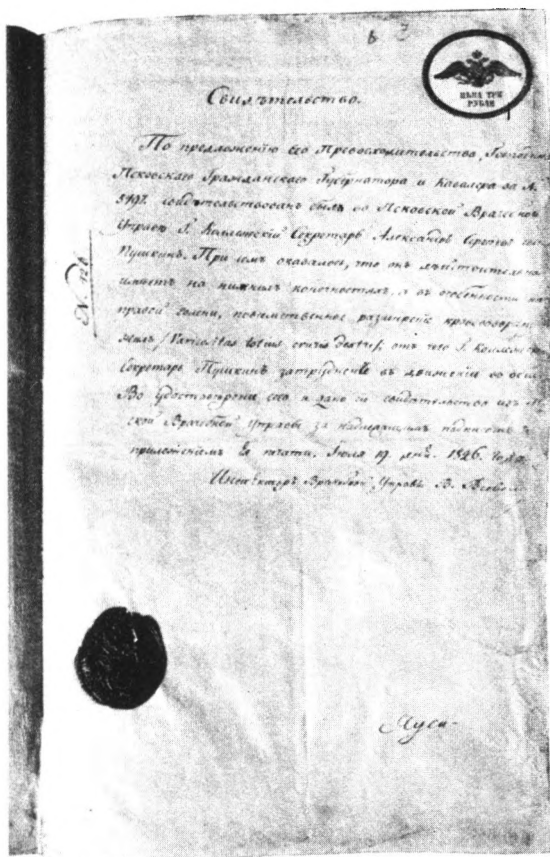 ЦѢНА ТРИ
РУБЛИ
Свидѣтельство.
По предложенію его Превосходительства, Господина
Псковскаго Гражданскаго Губернатора и Кавалера за №
5497. свидѣтельствованъ былъ во Псковской Врачебной
Управѣ Г. Коллежскій Секретарь Александръ Сергѣевъ сынъ
Пушкинъ. При семъ оказалось, что онъ дѣйствительно
имѣетъ на нижнихъ конечностяхъ, а въ особенности на
правой голени, повсемственное разширеніе кровевозврат
Varicositas totius cruris dextri; отъ чего Г. Коллежскій
Секретарь Пушкинъ затрудненъ въ движеніи во
Во удостовѣреніе сего и дано сіе свидѣтельство изъ
ской Врачебной Управы за надлежащимъ подписомъ
приложеніемъ ея печати. Іюля 19 дня. 1826. года
Инспекторъ Врачебной Управы В. Всеволо
N. 426